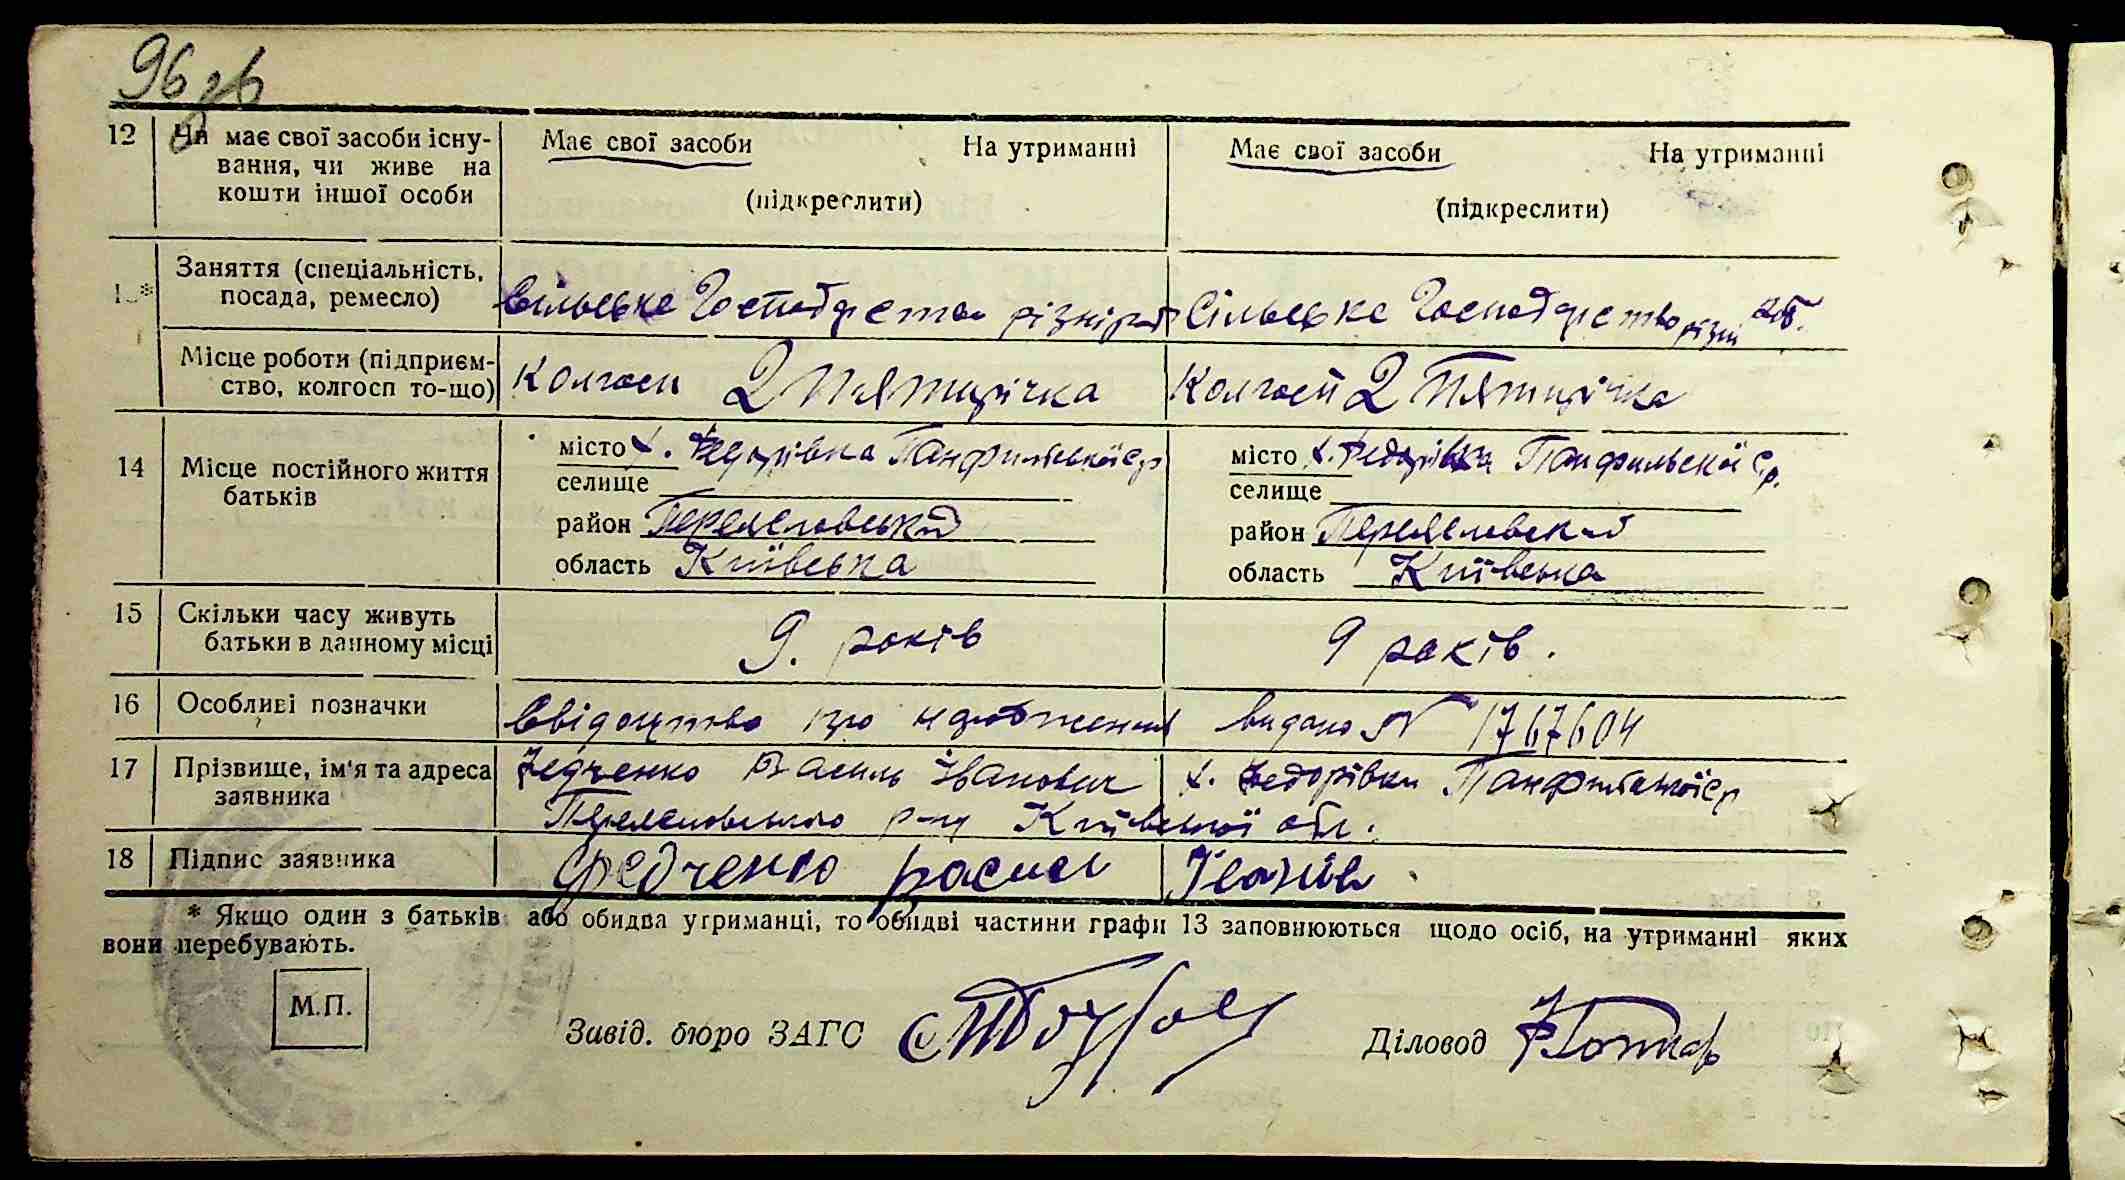 96 зв
12 Чи має свої засоби існу- Має свої засоби На утриманні Має свої засоби На утриманні
вання, чи живе на
кошти іншої особи (підкреслити) (підкреслити)
Заняття (спеціальність,
посада, ремесло) Сільське Господарство різні роб Сільське Господарство різні роб.
Місце роботи (підприєм-
ство, колгосп то-що) Колгосп 2 Пятирічка Колгосп 2 Пятирічка
14 Місце постійного життя місто х. Федорівка Панфильської с/р місто х. Федорівка Панфильської с/р.
батьків селище селище
район Переяславський район Переяславский
область Київська область Київська
15 Скільки часу живуть
батьки в данному місці 9. років 9 років.
16 Особливі позначки Свідоцтво про народження видано № 1767604
17 Прізвище, ім'я та адреса Федченко Василь Іванович х. Федорівка Панфильської с/р
заявника Переяславського р-ну Київської обл.
18 Підпис заявника Федченко Васил Іванів
* Якщо один з батьків або обидва утриманці, то обидві частини графи 13 заповнюються щодо осіб, на утриманні яких
вони перебувають.
М.П.
Завід. бюро ЗАГС Діловод